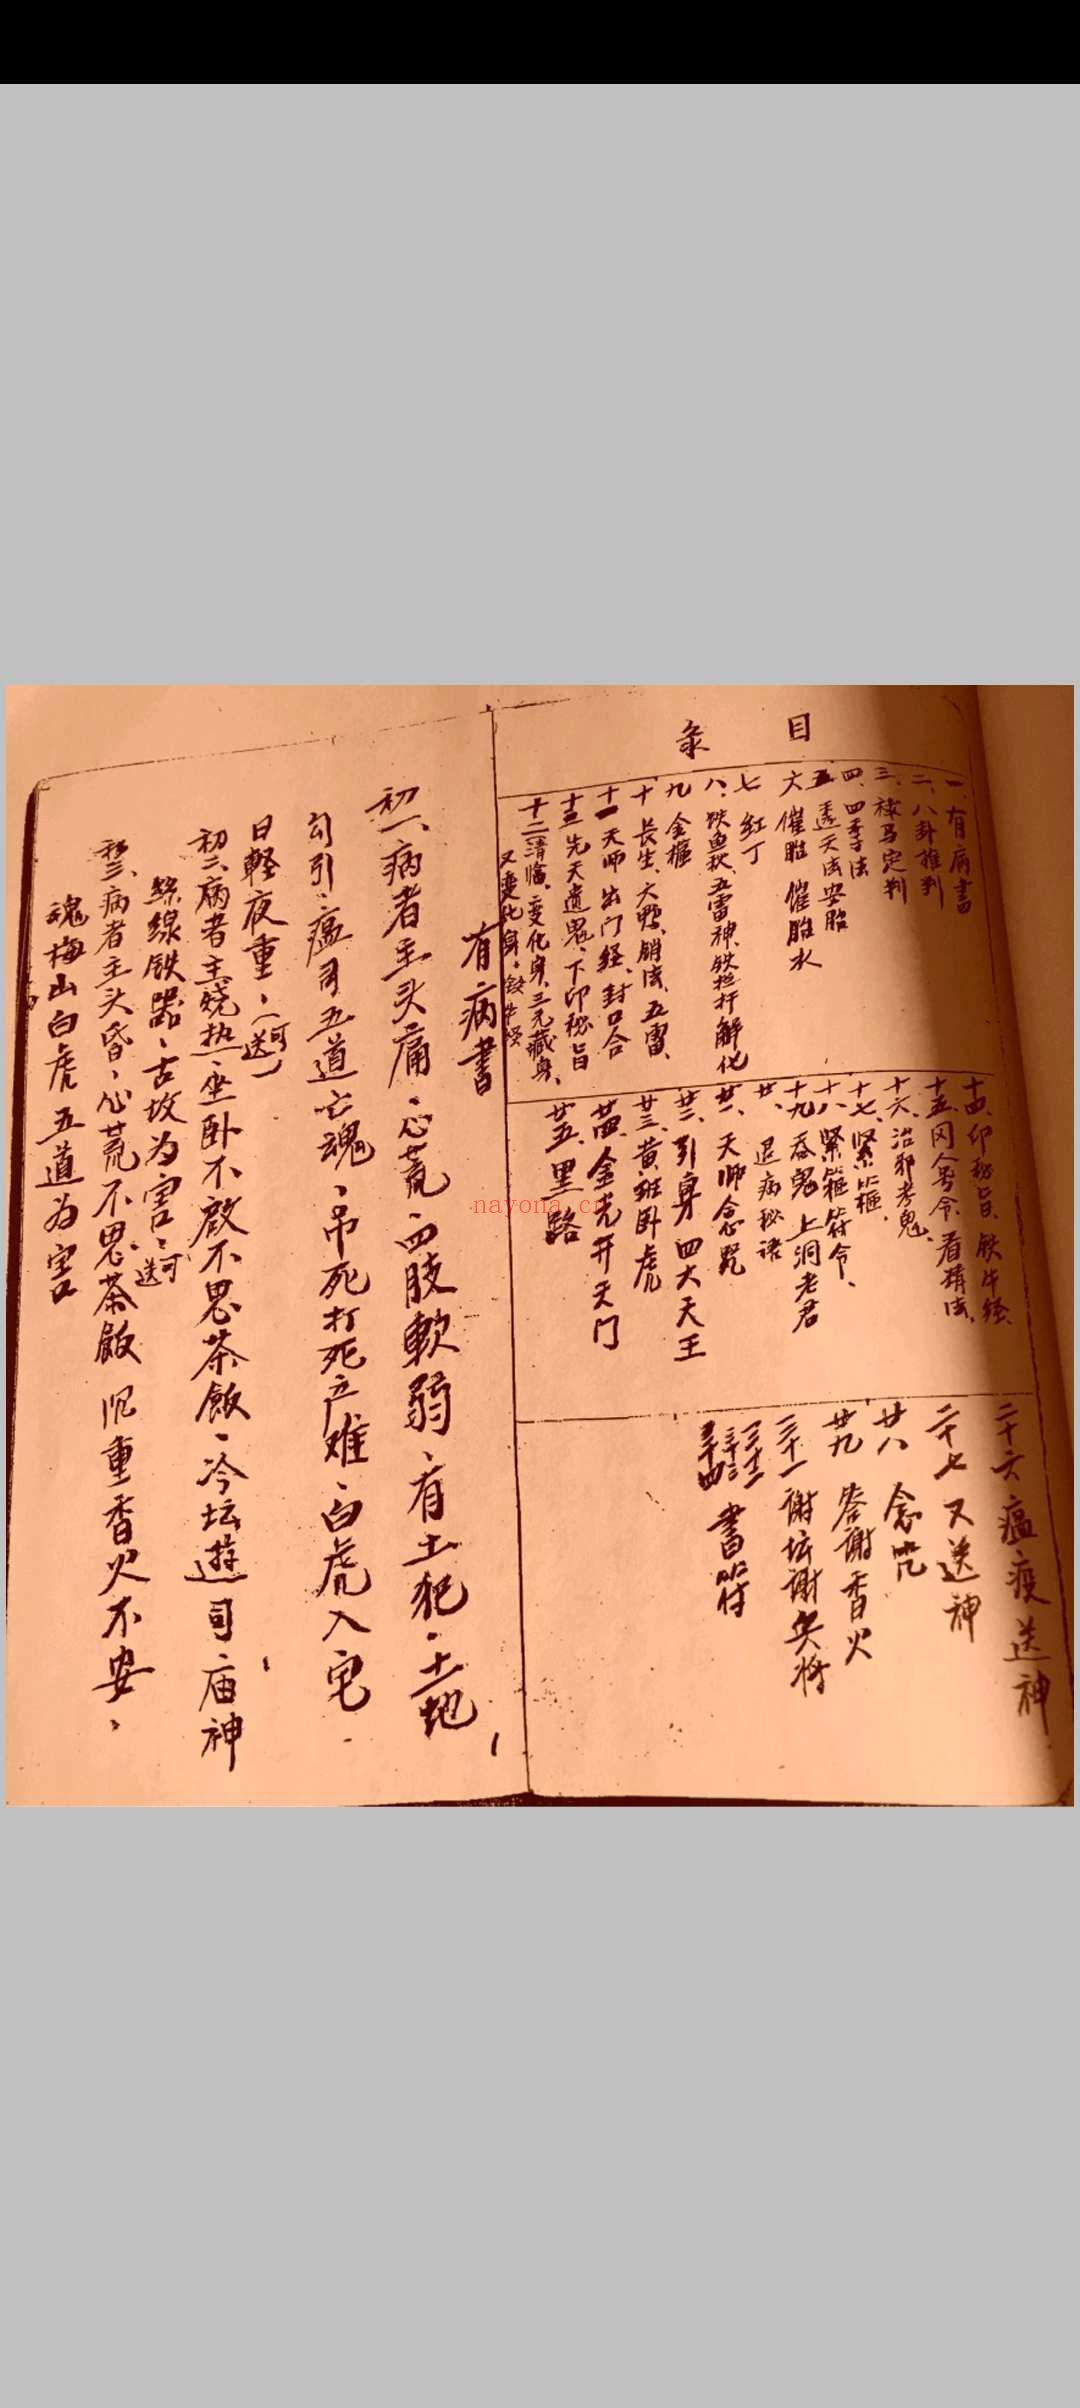 目录
一、有病書
二、八卦推判
三、禄马定判
四、四季法
五、透天法安胎
六、催胎 催胎水
七 红丁
八、铁鱼秋、五雷神、铁拦杆解化
九 金樞
十、长生、大
十一天师出门经、封口合
十三先天遗鬼、下印秘旨
十二清临、变化身、三元藏身、
又变化身、
十四、印秘旨、铁牛经、
十五、冈人号令、看精法、
十六、治邪考鬼、
十七、紧箍、
十八、紧箍符令、
十九、吞鬼 上洞老君
廿、退病秘诸
廿一、天师念咒
廿二、引身四大天王
廿三、黄班卧虎
廿四、金光开天门
廿五、里路
二十六、瘟疫送神
二十七 又送神
廿八 念咒
廿九 答谢香火
三十一谢坛谢兵将
三十二
三十三
三十四 書符
有病書
初一、病者主头痛、心荒、四肢軟弱、有土犯、土地
勾引、瘟司五道亡魂、吊死打死产难、白虎入宅
日輕夜重、（可送）
初二、病者主烧热、坐卧不啟不思茶飯、冷坛遊司庙神
絲線铁器、古坟为害、可送
初三、病者主头昏、心荒不思茶飯 沉重香火不安、
魂梅山白虎五道为害
nayona.cn